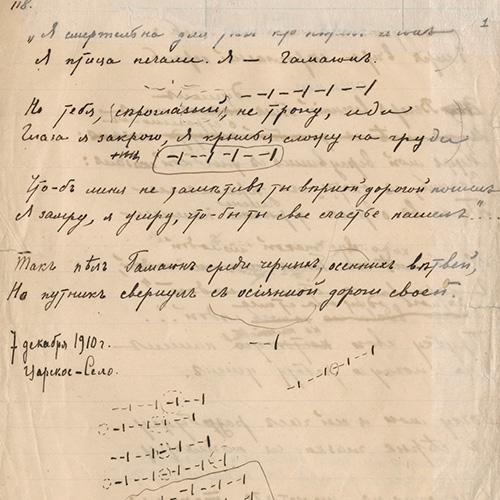 118.
1
„Я смертельна для тѣхъ, кто
Я птица печали. Я — Гамаюнъ.
Но тебя, сѣроглазый, не трону, иди
Глаза я закрою, я крылья сложу на груди
Что-бъ меня не замѣтивъ ты вѣрной дорогой пошелъ
Я замру, я умру, что-бы ты свое счастье нашелъ“...
Такъ пѣлъ Гамаюнъ среди черныхъ, осеннихъ вѣтвей,
Но путникъ свернулъ съ осіянной дороги своей.
7 декабря 1910 г.
Царское-Село.